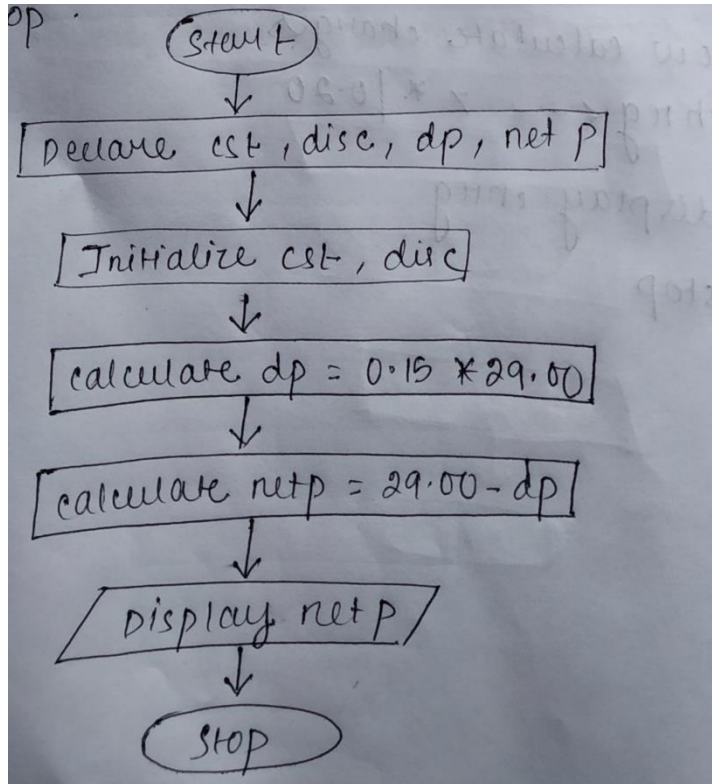 op.
Start
Declare cst, disc, dp, net p
Initialize cst, disc
calculate dp = 0.15 * 29.00
calculate netp = 29.00 - dp
Display netp
Stop